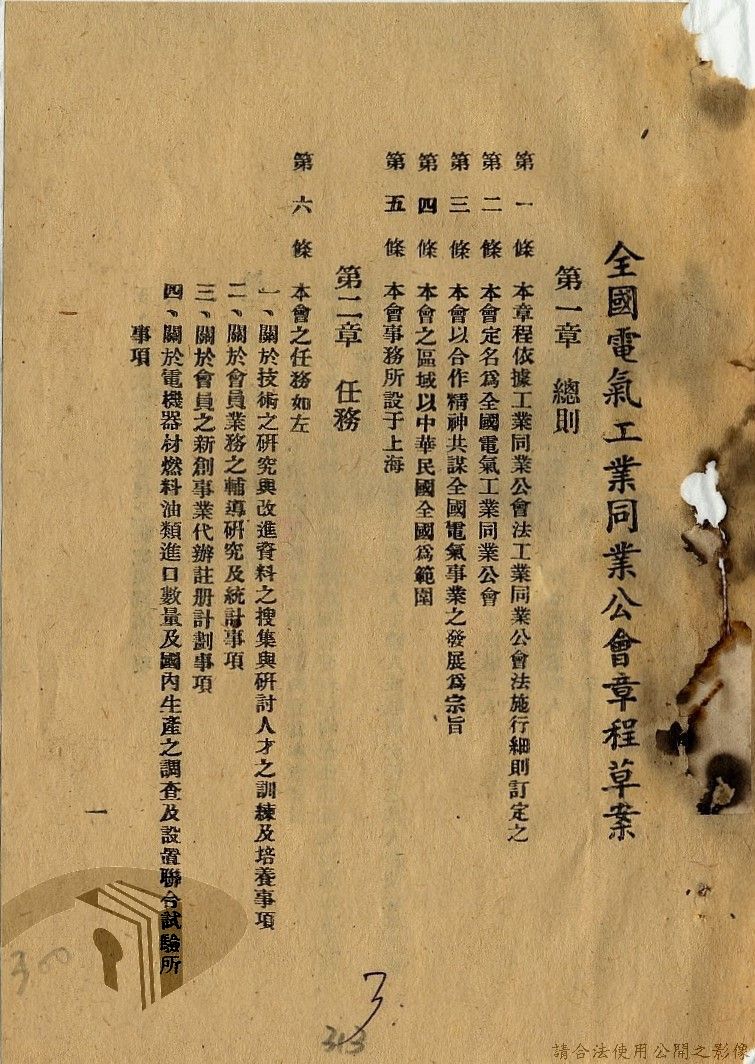 全國電氣工業同業公會章程草案
第一章 總則
第一條 本章程依據工業同業公會法工業同業公會法施行細則訂定之
第二條 本會定名爲全國電氣工業同業公會
第三條 本會以合作精神共謀全國電氣事業之發展爲宗旨
第四條 本會之區域以中華民國全國爲範圍
第五條 本會事務所設于上海
第二章 任務
第六條 本會之任務如左
一、關於技術之研究與改進資料之搜集與研討人才之訓練及培養事項
二、關於會員業務之輔導研究及統計事項
三、關於會員之新創事業代辦註册計劃事項
四、關於電機器材燃料油類進口數量及國內生產之調查及設置聯合試驗所
事項
一
300
3.
313
請合法使用公開之影像